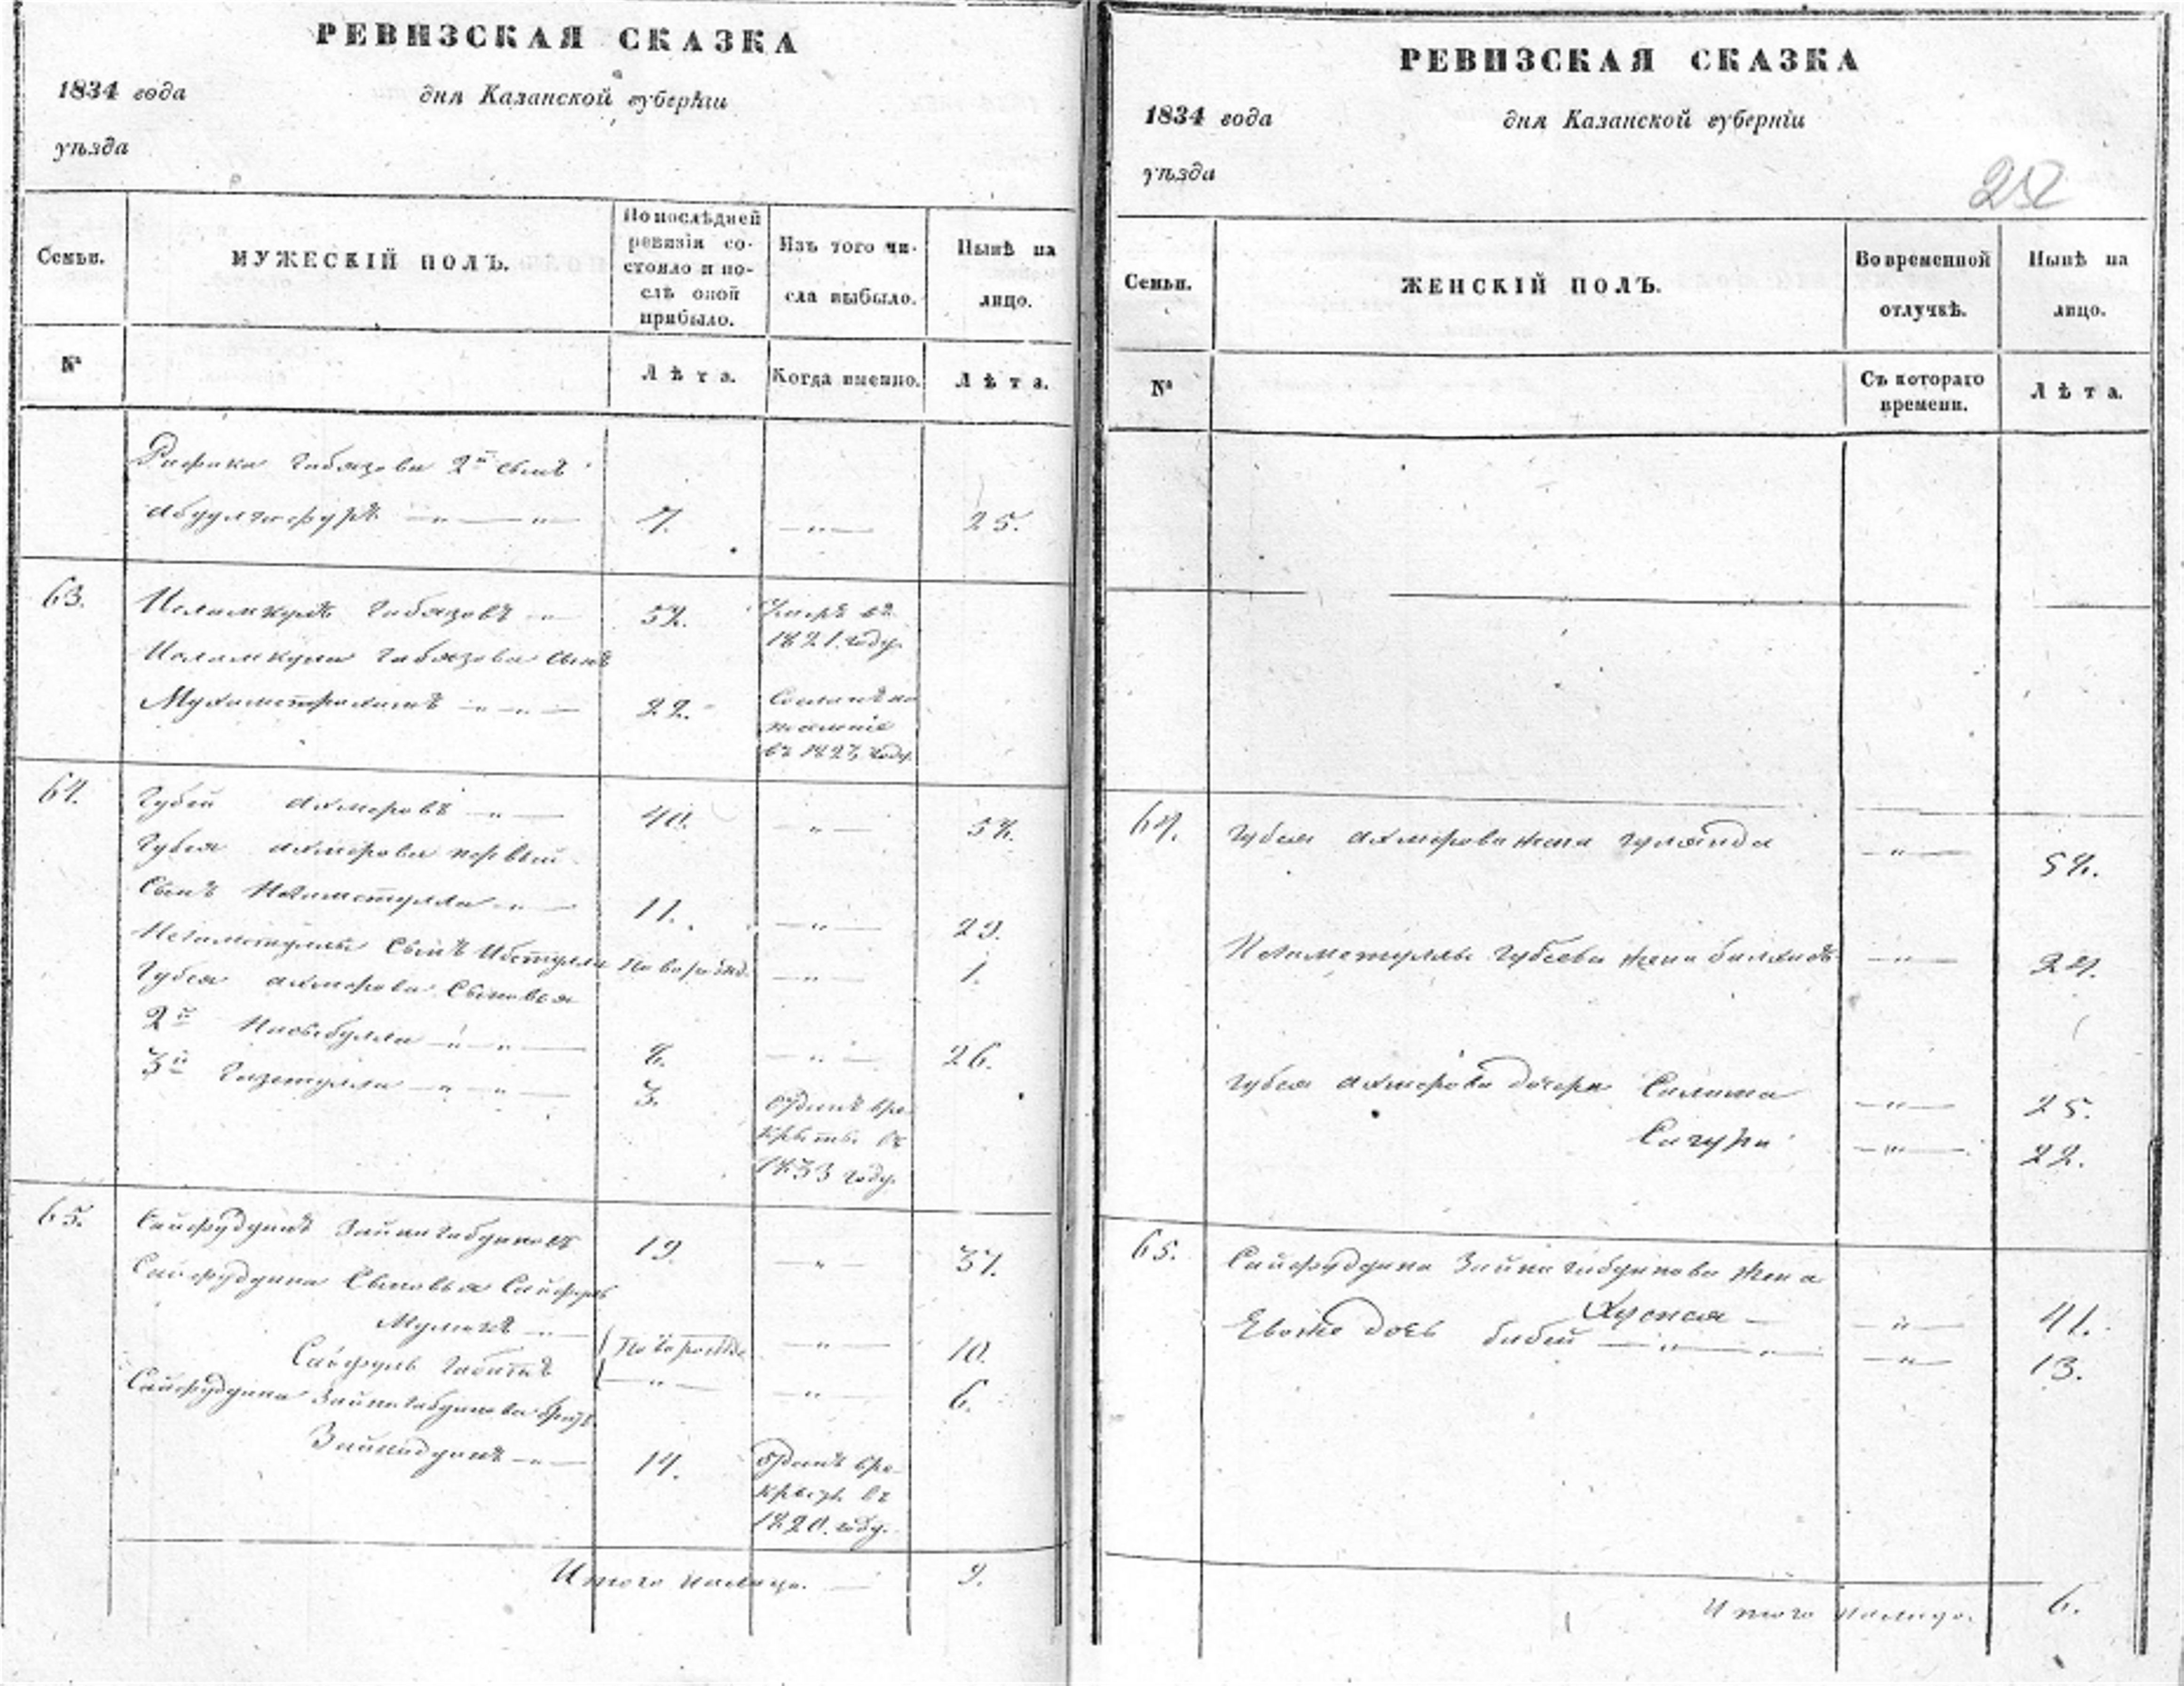 РЕВИЗСКАЯ СКАЗКА
1834 года дня Казанской губерніи
уѣзда
Семьи.
МУЖЕСКІЙ ПОЛЪ.
По послѣдней ревизіи состояло и послѣ оной прибыло.
Изъ того числа выбыло.
Нынѣ на лицо.
№
Лѣта.
Когда именно.
Лѣта.
Рафика Габязова 2й сынъ
Абдулгафуръ 7. 25.
63. Исламкулъ Габязовъ 52. Умръ въ 1821. году.
Исламкула Габязова сынъ
Мухаметрахимъ 22. Сосланъ на поселеніе въ 1827 году.
64. Губей Ахмеровъ 40. 58.
Губея Ахмерова первый
сынъ Негаметулла 11. 29.
Негаметуллы сынъ Новорожд. 1.
Губея Ахмерова сыновья
2й Насыбулла 8. 26.
3й Гизетулла 3. Отданъ въ рекруты въ 1833 году.
65. Сайфуддинъ Зайнигабдиновъ 19. 37.
Сайфуддина сыновья Сайфуль
Мулюкъ Новорожд. 10.
Сайфуль Габитъ 6.
Сайфуддина Зайнигабдинова братъ
Зайнидинъ 14. Отданъ въ рекруты въ 1820. году.
Итого налицо. 9.
РЕВИЗСКАЯ СКАЗКА
1834 года дня Казанской губерніи
уѣзда
252
Семьи.
ЖЕНСКІЙ ПОЛЪ.
Во временной отлучкѣ.
Нынѣ на лицо.
№
Съ котораго времени.
Лѣта.
64. Губея Ахмерова жена Гулянда 52.
Негаметуллы Губеева жена 24.
Губея Ахмерова дочери Салима 25.
Сагура 22.
65. Сайфуддина Зайнигабдинова жена
Хусная 41.
Евоже дочь Бибей 13.
Итого налицо. 6.